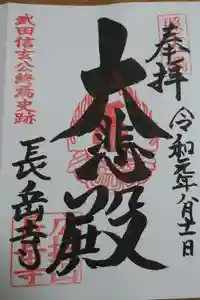 奉拝
令和元年八月十一日
大悲殿
武田信玄公終焉史跡
長岳寺